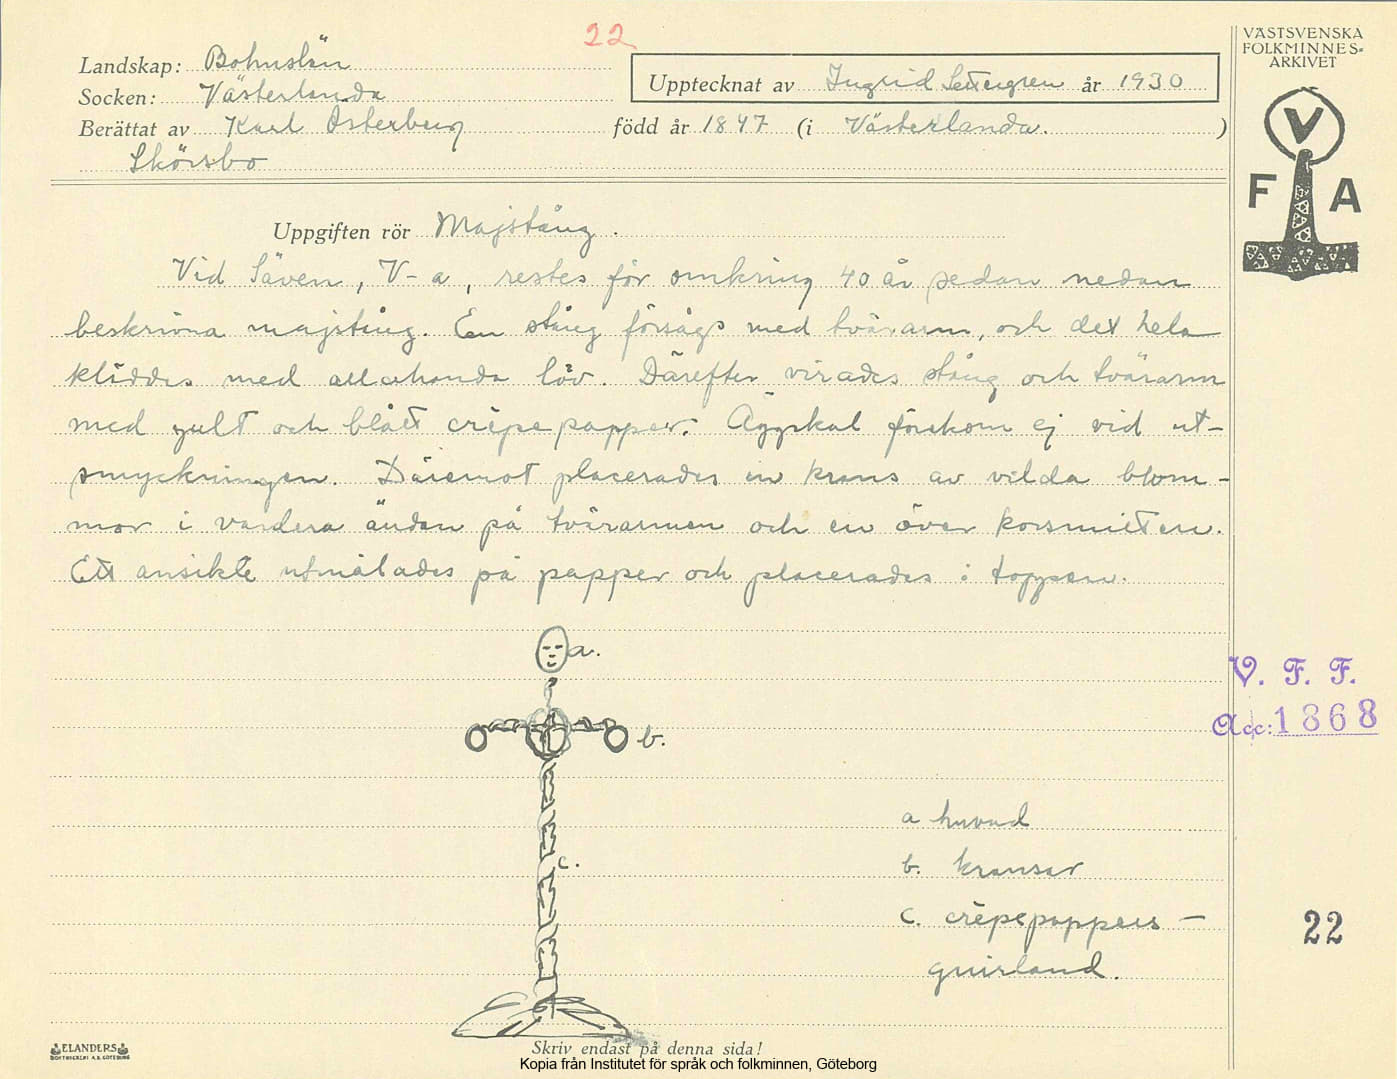 22
Landskap: Bohuslän
Socken: Västerlanda
Upptecknat av Ingrid Settergren år 1930
Berättat av Karl Österberg född år 1847 (i Västerlanda. )
Skörsbo
Uppgiften rör Majstång.
Vid Säven, V-a, restes för omkring 40 år sedan nedan
beskrivna majstång. En stång försågs med tvärarm, och det hela
kläddes med allehanda löv. Därefter virades stång och tvärarm
med gult och blått crêpepapper. Äggskal förekom ej vid ut-
smyckningen. Däremot placerades en krans av vilda blom-
mor i vardera ändan på tvärarmen och en över korsmitten.
Ett ansikte utmålades på papper och placerades i toppen.
a.
b.
c.
a huvud
b. kransar
c. crêpepappers-
guirland.
ELANDERS
BOKTRYCKERI A.B. GÖTEBORG
Skriv endast på denna sida!
Kopia från Institutet för språk och folkminnen, Göteborg
VÄSTSVENSKA
FOLKMINNES-
ARKIVET
V
F A
V. F. F.
Acc: 1868
22